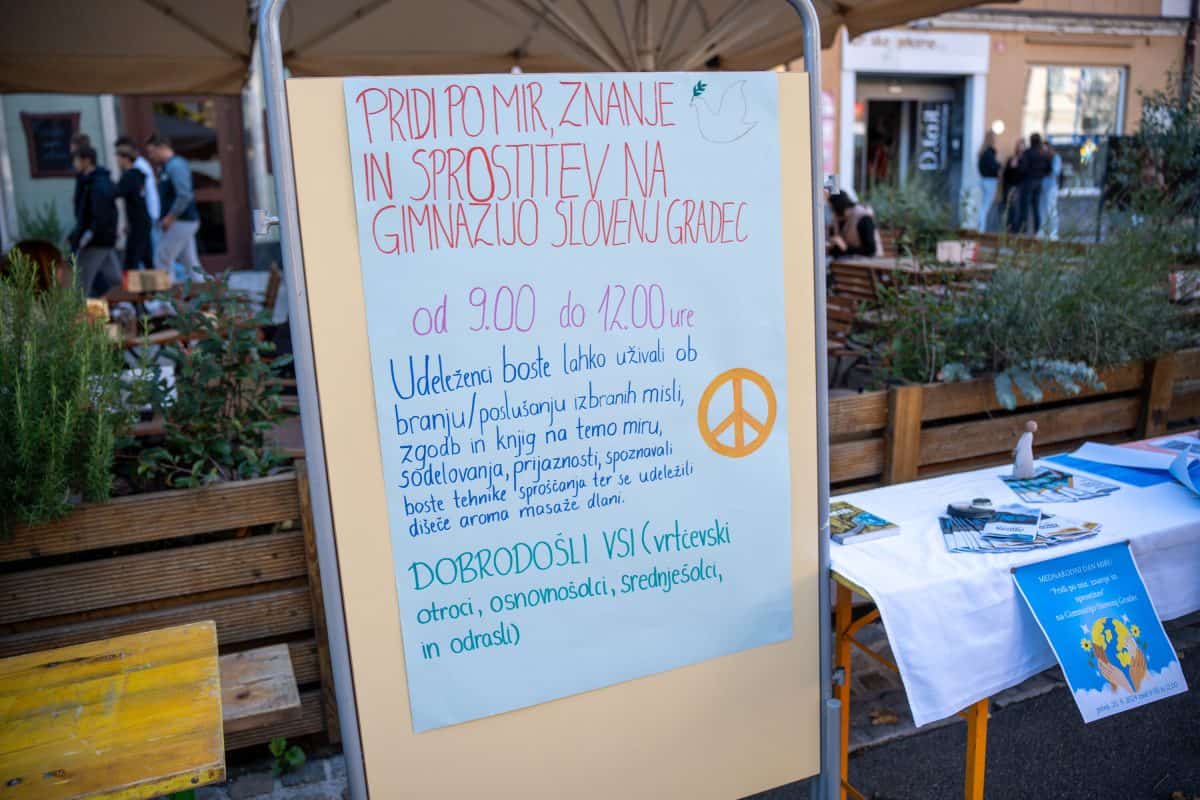 PRIDI PO MIR, ZNANJE
IN SPROSTITEV NA
GIMNAZIJO SLOVENJ GRADEC
od 9.00 do 12.00 ure
Udeleženci boste lahko uživali ob
branju/poslušanju izbranih misli,
zgodb in knjig na temo miru,
sodelovanja, prijaznosti, spoznavali
boste tehnike sproščanja ter se udeležili
dišeče aroma masaže dlani.
DOBRODOŠLI VSI (vrtčevski
otroci, osnovnošolci, srednješolci,
in odrasli)
MEDNARODNI DAN MIRU
"Pridi po mir, znanje in
sprostitev"
na Gimnazijo Slovenj Gradec